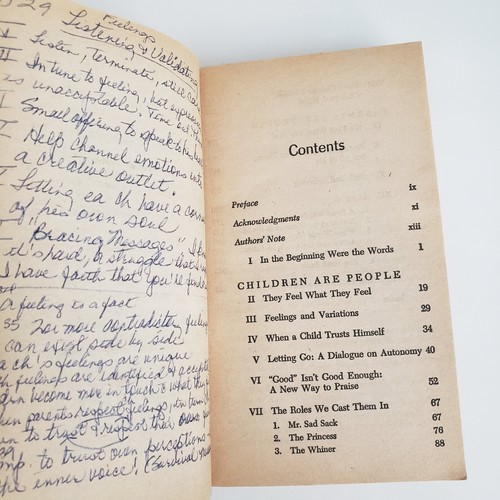 29 Feelings
Listening & Validating
V Listen, terminate, still
II In tune to feeling, but expression
is unacceptable. Time out
I Small offering, to speak to
I Help channel emotions into
a creative outlet.
I Letting ea ch have a corner
of his own soul
"Bracing Messages", I know
it's hard, a struggle that's
I have faith that you'll
A feeling is a fact
35 2 or more contradictory feelings
can exist side by side
ach's feelings are unique
feelings are identified & accepted
become more in touch c what they
when parents respect feelings, in turn
to trust & respect their own
to trust own perceptions
the inner voice! (Survival
Contents
Preface ix
Acknowledgments xi
Authors' Note xiii
I In the Beginning Were the Words 1
CHILDREN ARE PEOPLE
II They Feel What They Feel 19
III Feelings and Variations 29
IV When a Child Trusts Himself 34
V Letting Go: A Dialogue on Autonomy 40
VI "Good" Isn't Good Enough:
A New Way to Praise 52
VII The Roles We Cast Them In 67
1. Mr. Sad Sack 67
2. The Princess 76
3. The Whiner 88